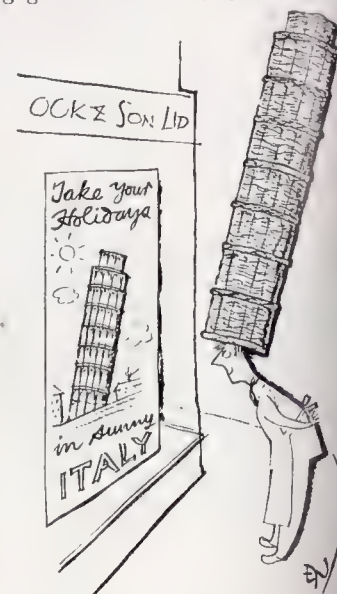 OCK & SON LTD
Take Your
Holidays
in sunny
ITALY
EN